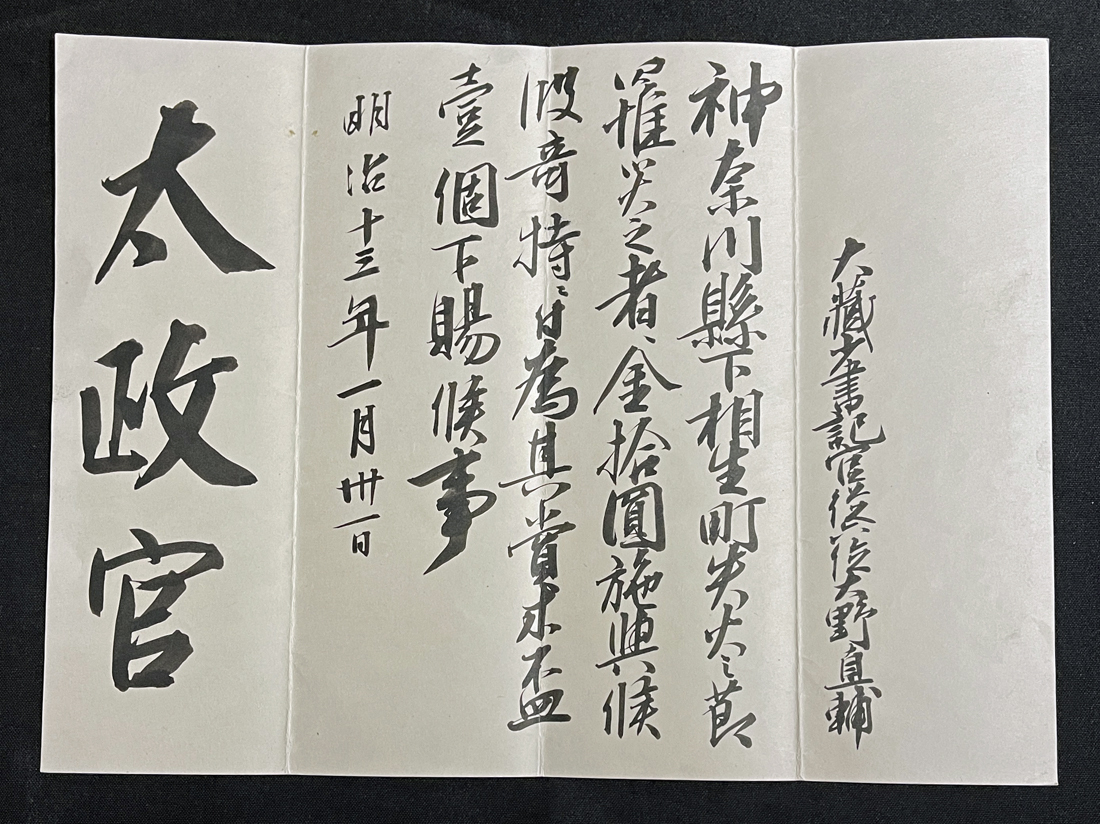 大藏少書記官従六位大野直輔
神奈川縣下相生町失火之節
罹災之者へ金拾圓施與候
段奇特ニ付為其賞木盃
壹個下賜候事
明治十三年一月卅一日
太政官